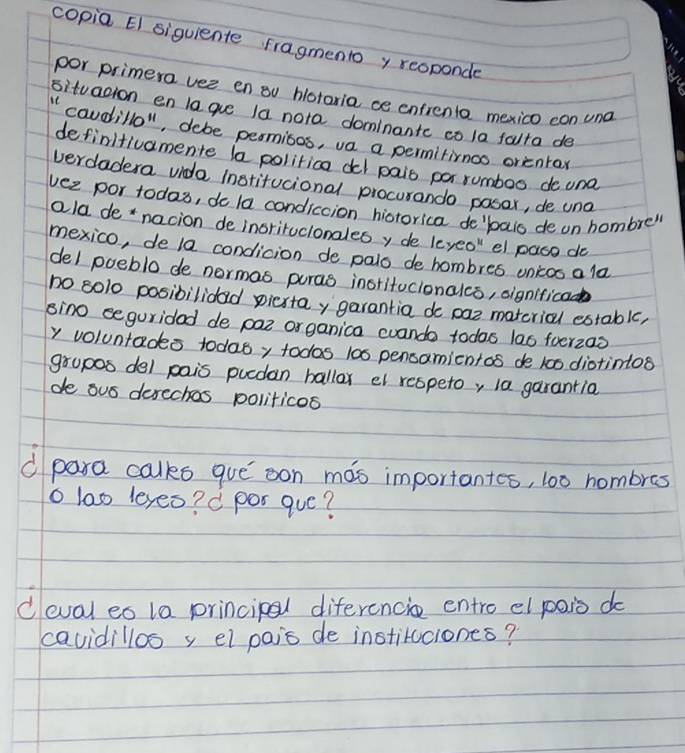 copia El siguiente fragmento y responde
por primera vez en su historia se enfrenta mexico con una
situacion en la que la nota dominante es la falta de
"caudillo", debe permisos, va a permitirnos orientar
definitivamente la politica del pais por rumbos de una
verdadera vida institucional procurando pasar, de una
vez por todas, de la condiccion historica de "pais de un hombre"
a la de * nacion de institucionales y de leyes" el paso de
mexico, de la condicion de pais de hombres unicos a la
del pueblo de normas puras institucionales, significado
no solo posibilidad cierta y garantia de paz material estable,
sino seguridad de paz organica cuando todas las fuerzas
y voluntades todas y todos los pensamientos de los distintos
grupos del pais puedan hallar el respeto y la garantia
de sus derechos politicos
¿ para calles qué son más importantes, los hombres
o las leyes? ¿ por que?
¿ cual es la principal diferencia entre el pais de
cauidillos y el pais de instituciones?